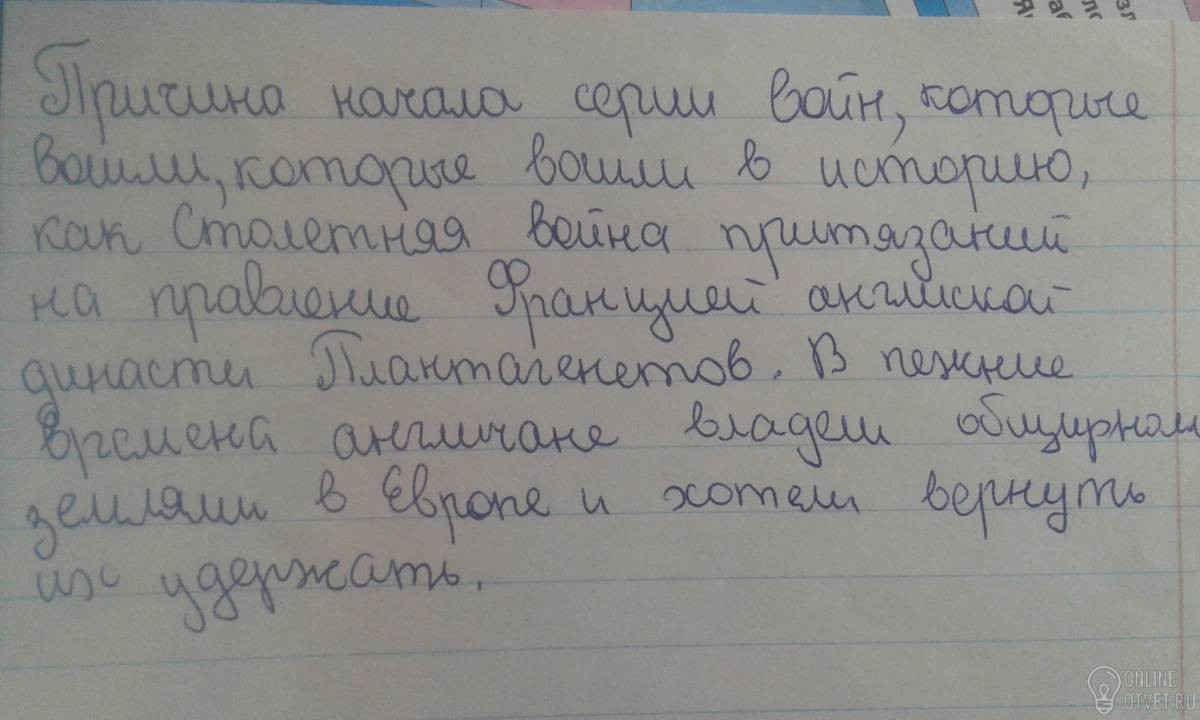 Причина начала серии войн, которые
вошли, которые вошли в историю,
как Столетняя война притязаний
на правление Францией англиской
династи Плантагенетов. В пежние
времена англичане владели общирными
землями в Европе и хотели вернуть
их удержать.
ONLINE
OTVET.RU